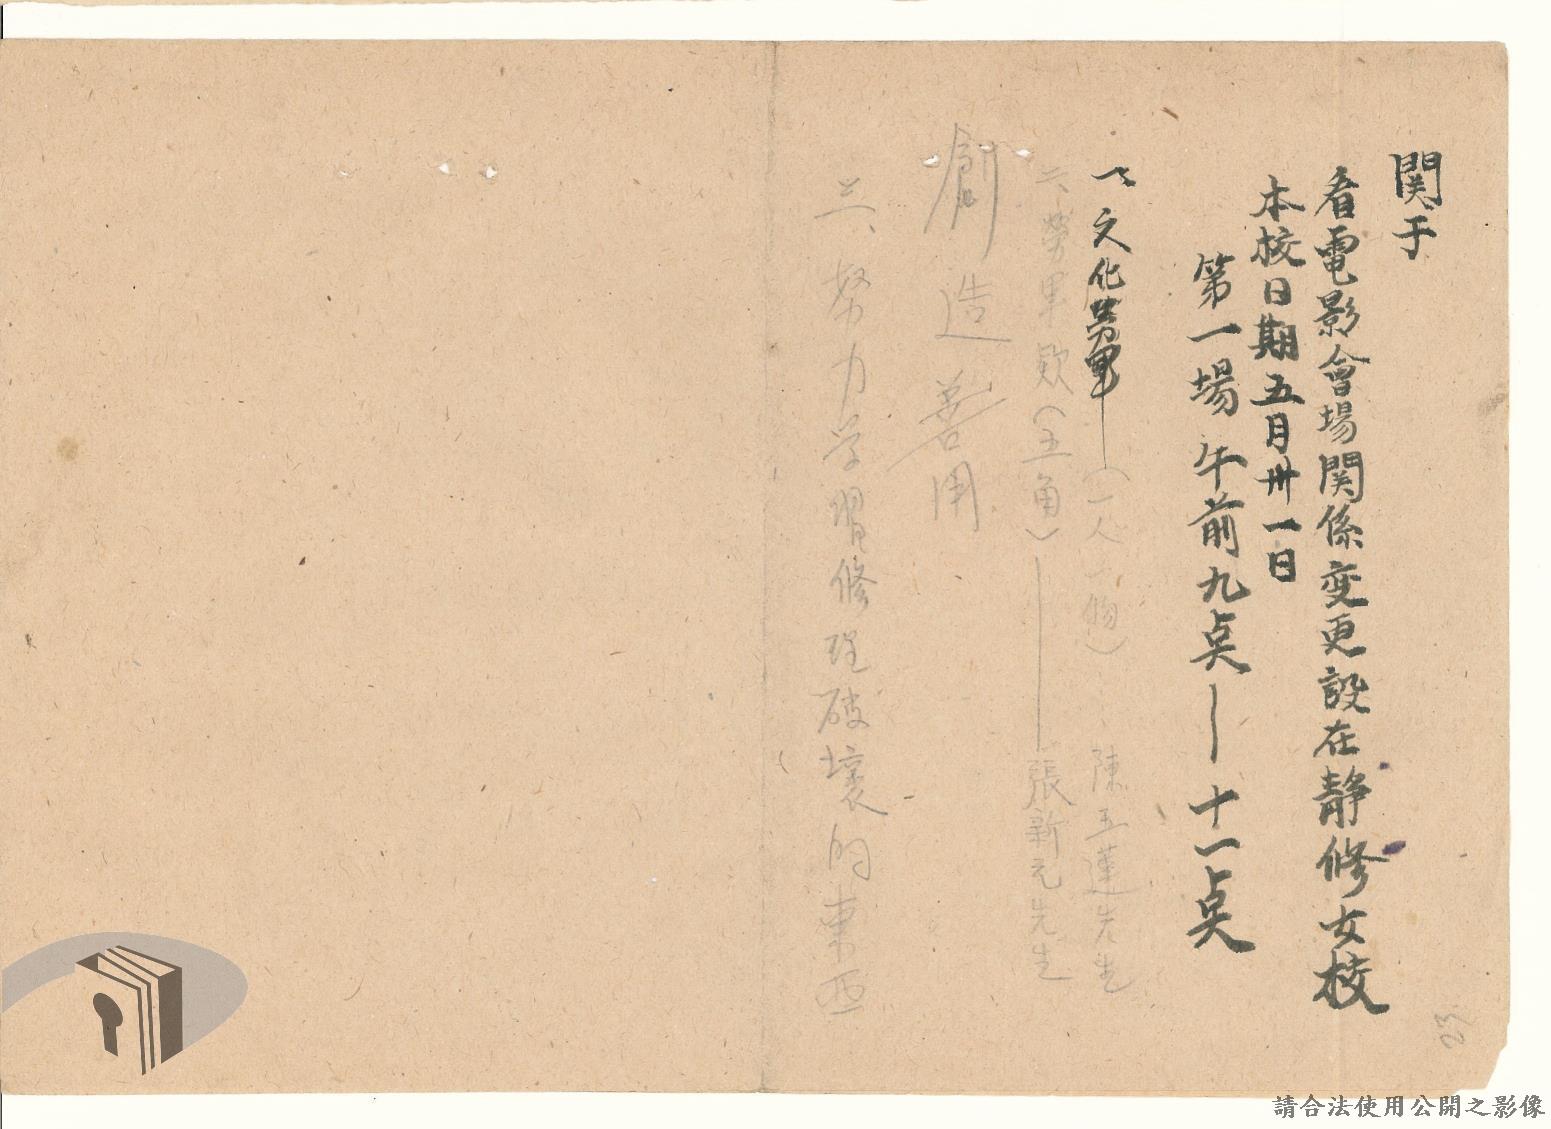 関于
看電影會場関係変更設在静修女校
本校日期五月卅一日
第一場 午前九点—十一点
一、文化勞軍—(一人一物) 陳玉蓮先生
二、勞軍欵(五角)—張新元先生
創造善用
三、努力学習修理破壞的東西
23
請合法使用公開之影像